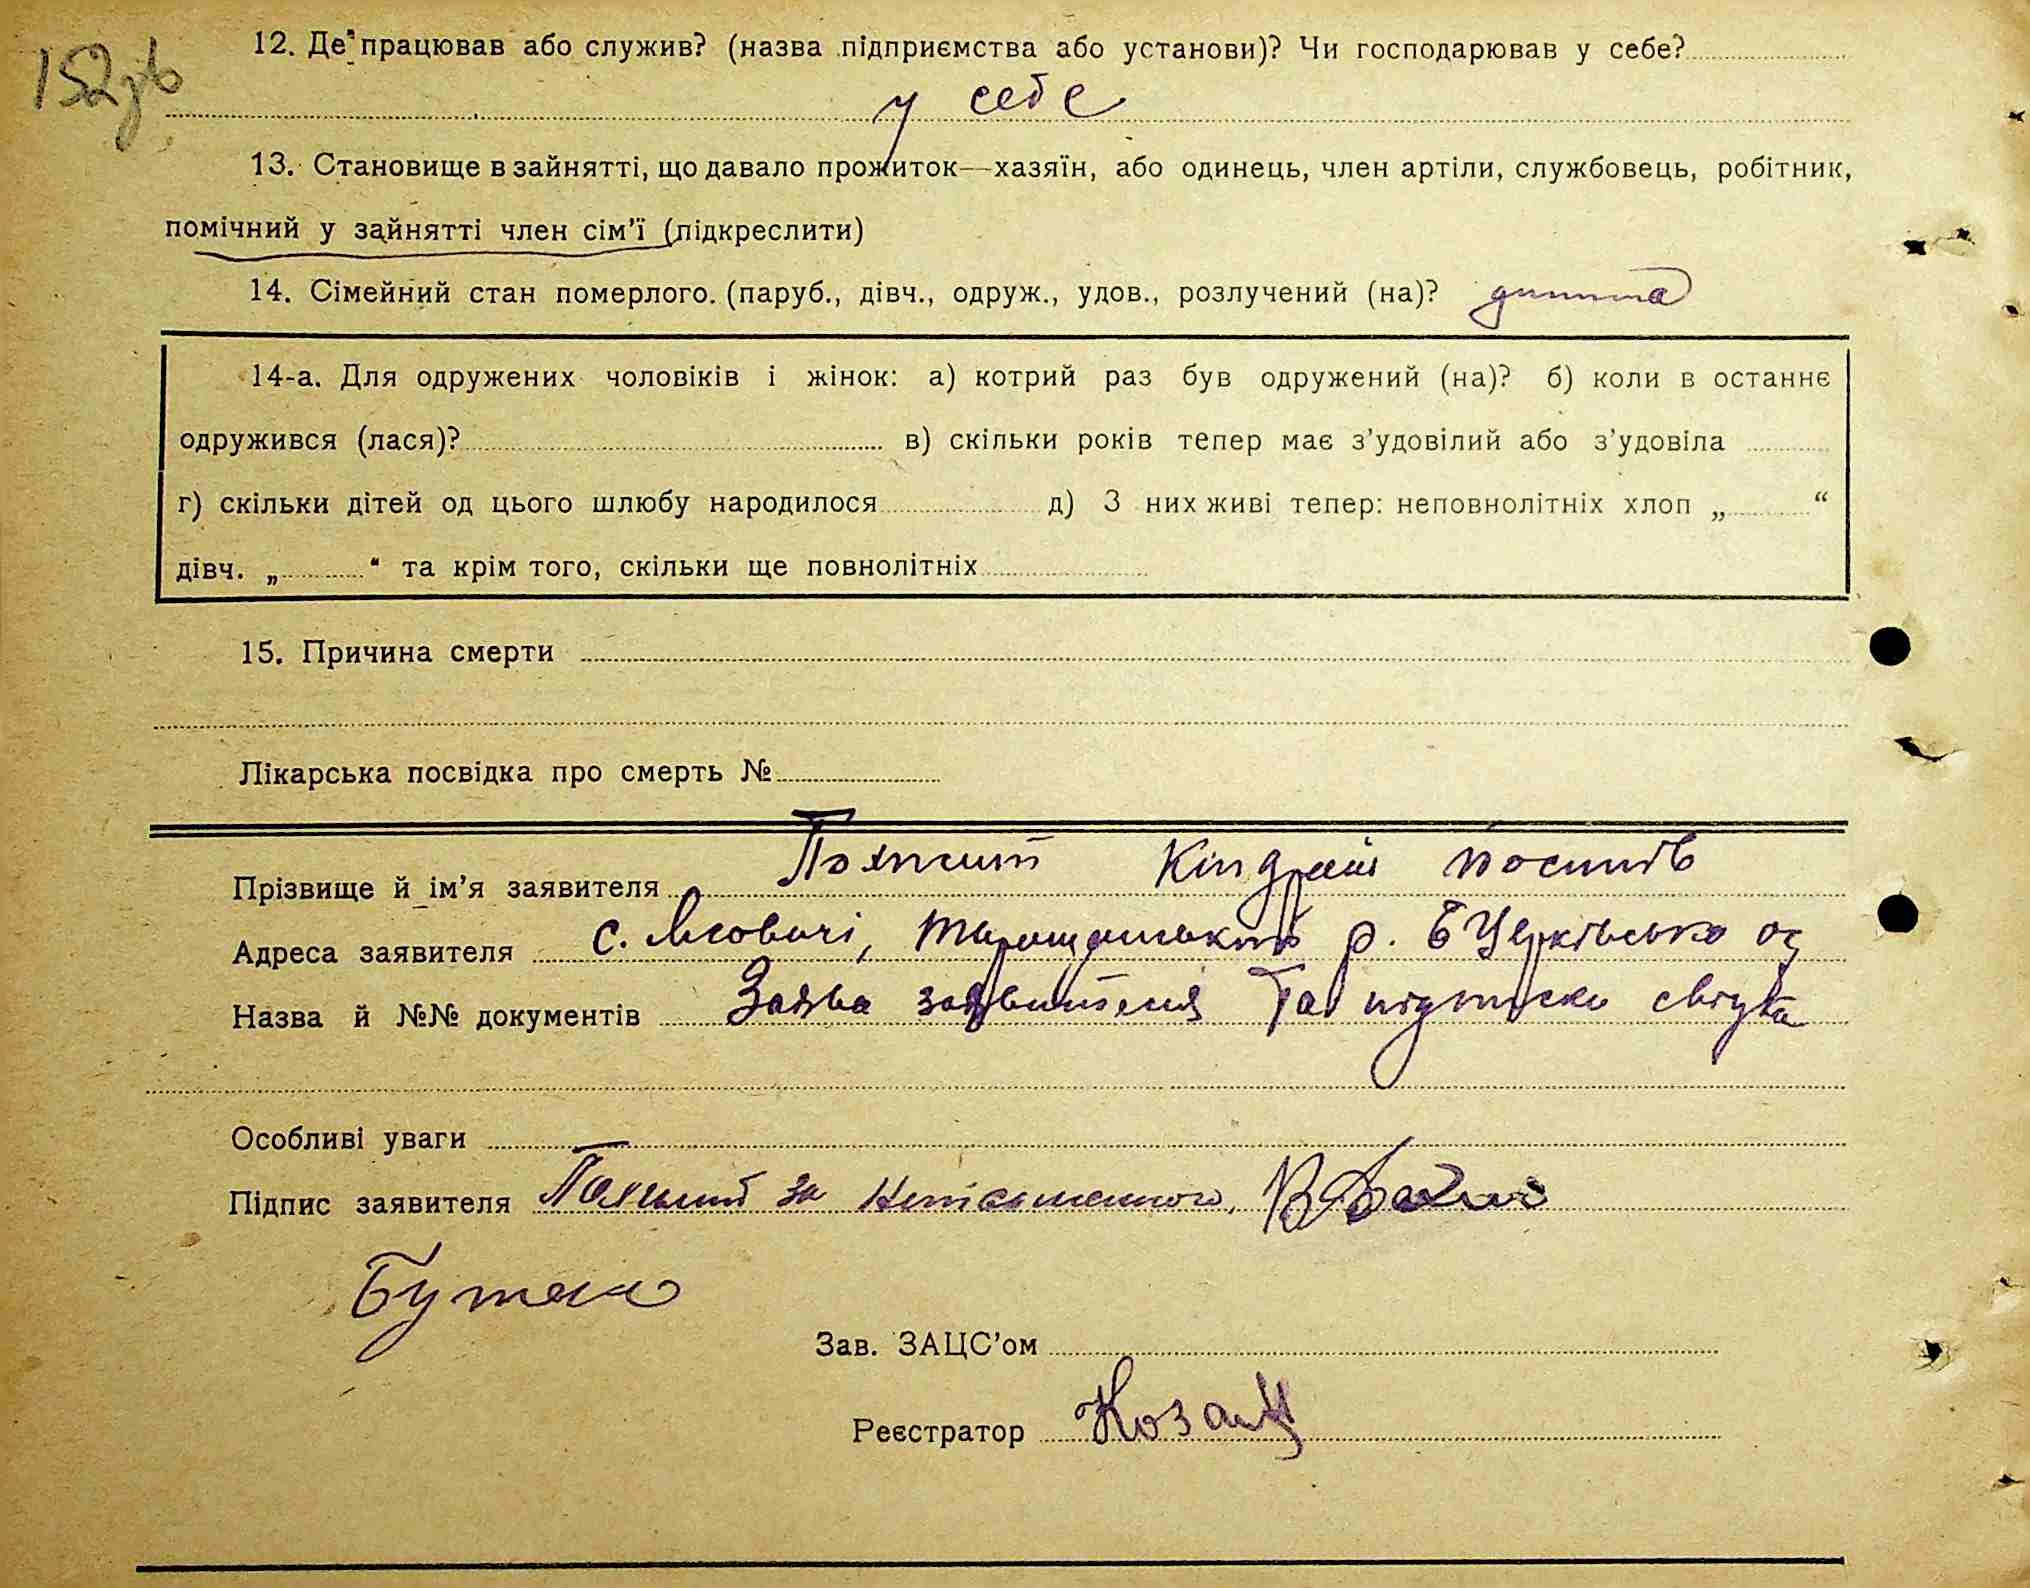 152зв
12. Де працював або служив? (назва підприємства або установи)? Чи господарював у себе?
у себе
13. Становище в зайнятті, що давало прожиток—хазяїн, або одинець, член артіли, службовець, робітник,
помічний у зайнятті член сім’ї (підкреслити)
14. Сімейний стан померлого. (паруб., дівч., одруж., удов., розлучений (на)? дитина
14-а. Для одружених чоловіків і жінок: а) котрий раз був одружений (на)? б) коли в останнє
одружився (лася)? в) скільки років тепер має з’удовілий або з’удовіла
г) скільки дітей од цього шлюбу народилося д) З них живі тепер: неповнолітніх хлоп „ “
дівч. „ “ та крім того, скільки ще повнолітніх
15. Причина смерти
Лікарська посвідка про смерть №
Прізвище й ім’я заявителя Кіндрат Йосипів
Адреса заявителя с. Лісовичі, Таращанського р. Б Церківсько ок
Назва й №№ документів Заява заявителя та підписка свідка
Особливі уваги
Підпис заявителя за неписьменного,
Бутен
Зав. ЗАЦС’ом
Реєстратор Козац